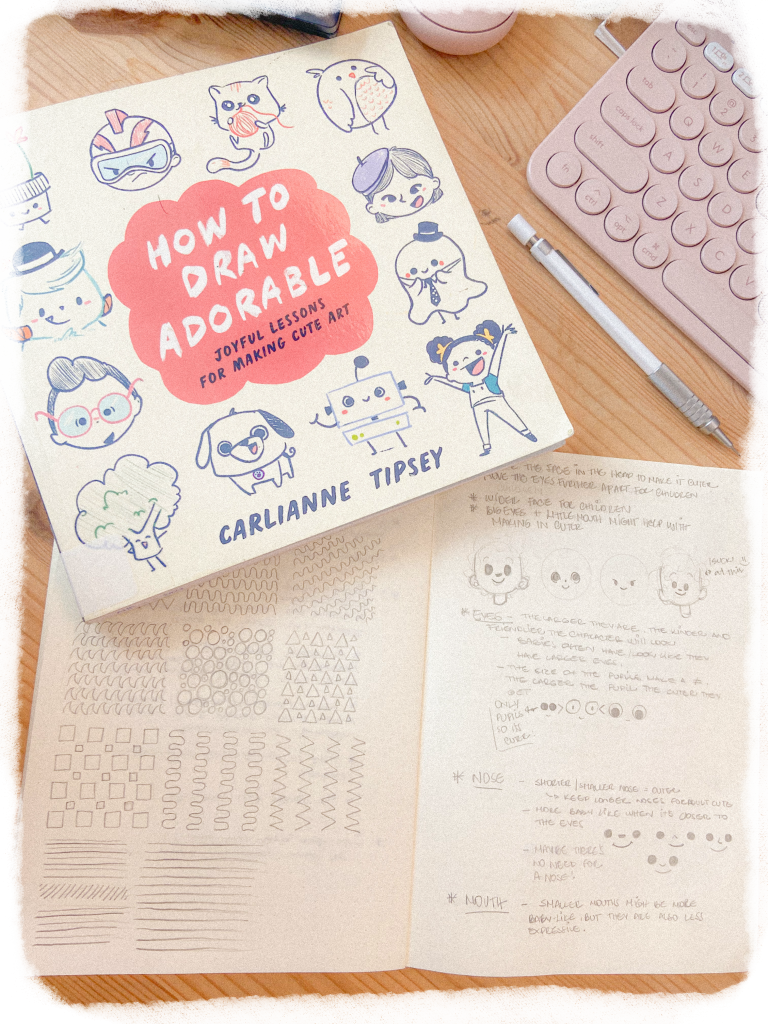 HOW TO
DRAW
ADORABLE
JOYFUL LESSONS
FOR MAKING CUTE ART
CARLIANNE TIPSEY
tab
caps lock
shift
fn
ctrl
opt
cmd
Q
W
E
A
S
D
Z
X
C
V
THE FACE IN THE HEAD TO MAKE IT CUTER
MOVE THE EYES FURTHER APART FOR CHILDREN
* WIDER FACE FOR CHILDREN
* BIG EYES + LITTLE MOUTH MIGHT HELP WITH
MAKING IN CUTER
* EYES - THE LARGER THEY ARE, THE KINDER AND
FRIENDLIER THE CHARACTER WILL LOOK
- BABIES OFTEN HAVE/LOOK LIKE THEY
HAVE LARGER EYES.
- THE SIZE OF THE PUPILS
THE LARGER THE PUPIL THE CUTER THEY
GET
ONLY
PUPILS
IS
CUTE
* NOSE - SHORTER/SMALLER NOSE = CUTER
↳ KEEP LONGER NOSES FOR ADULT CUTE
- MORE BABY LIKE WHEN IT'S CLOSER TO
THE EYES
- MAYBE THERE'S
NO NEED FOR
A NOSE!
* MOUTH - SMALLER MOUTHS MIGHT BE MORE
BABY-LIKE, BUT THEY ARE ALSO LESS
EXPRESSIVE.